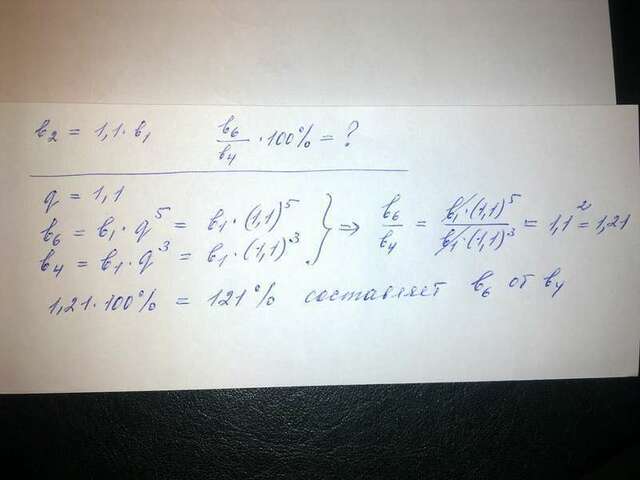 b₂ = 1,1·b₁ b₆/b₄ · 100% = ?
q = 1,1
b₆ = b₁·q⁵ = b₁·(1,1)⁵
b₄ = b₁·q³ = b₁·(1,1)³ } => b₆/b₄ = b₁·(1,1)⁵/b₁·(1,1)³ = 1,1² = 1,21
1,21·100% = 121% составляет b₆ от b₄